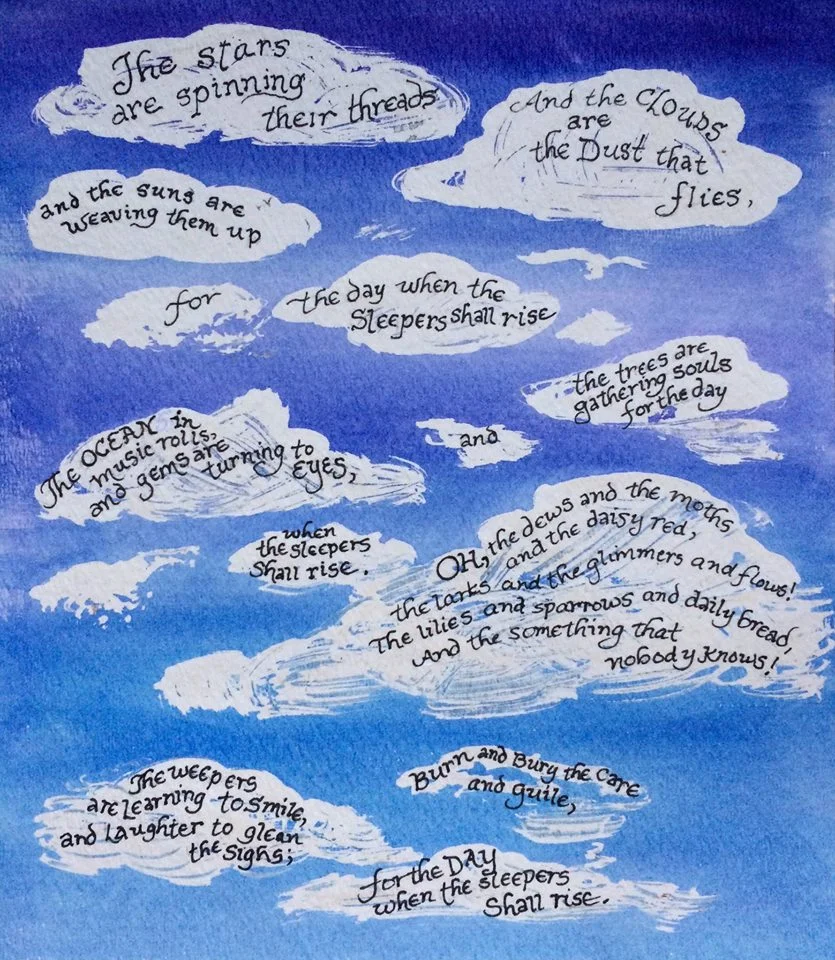 The stars
are spinning
their threads
And the CLOUDS
are
the Dust that
flies,
and the suns are
weaving them up
for
the day when the
Sleepers shall rise
The OCEAN in
music rolls;
and gems are
turning to
EYES,
and
the trees are
gathering souls
for the day
when
the sleepers
Shall rise.
OH, the dews and the moths,
and the daisy red,
the larks and the glimmers and flows!
The lilies and sparrows and daily bread,
And the something that
nobody knows!
The weepers
are Learning to smile,
and Laughter to glean
the sighs;
Burn and Bury the Care
and guile,
for the DAY
when the sleepers
Shall rise.